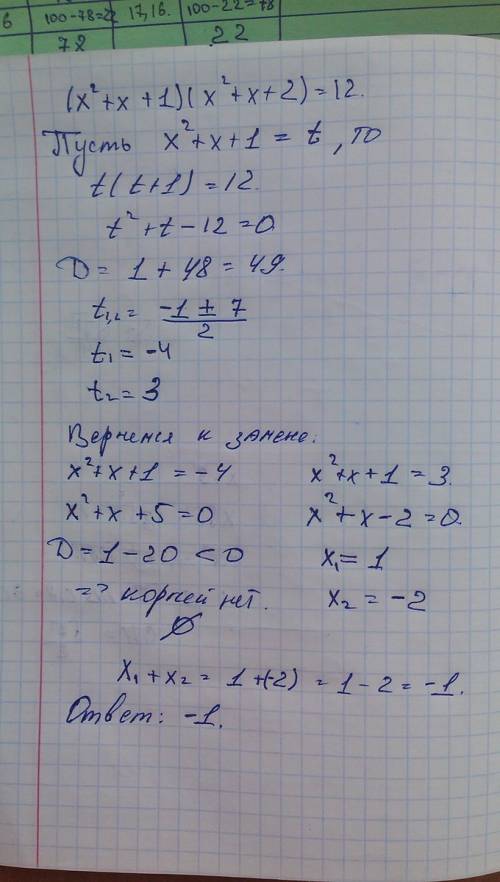 6 100-78=22 17,16. 100-22=78
78 22
(x²+x+1)(x²+x+2)=12.
Пусть x²+x+1 = t, то
t(t+1)=12.
t²+t-12=0
D= 1+48=49.
t₁,₂= -1 ± 7 / 2
t₁= -4
t₂= 3
Вернемся к замене:
x²+x+1 = -4 x²+x+1=3.
x²+x+5=0 x²+x-2=0.
D=1-20 <0 x₁= 1
=> корней нет. x₂ = -2
∅
x₁+x₂ = 1+(-2) = 1-2= -1.
Ответ: -1.